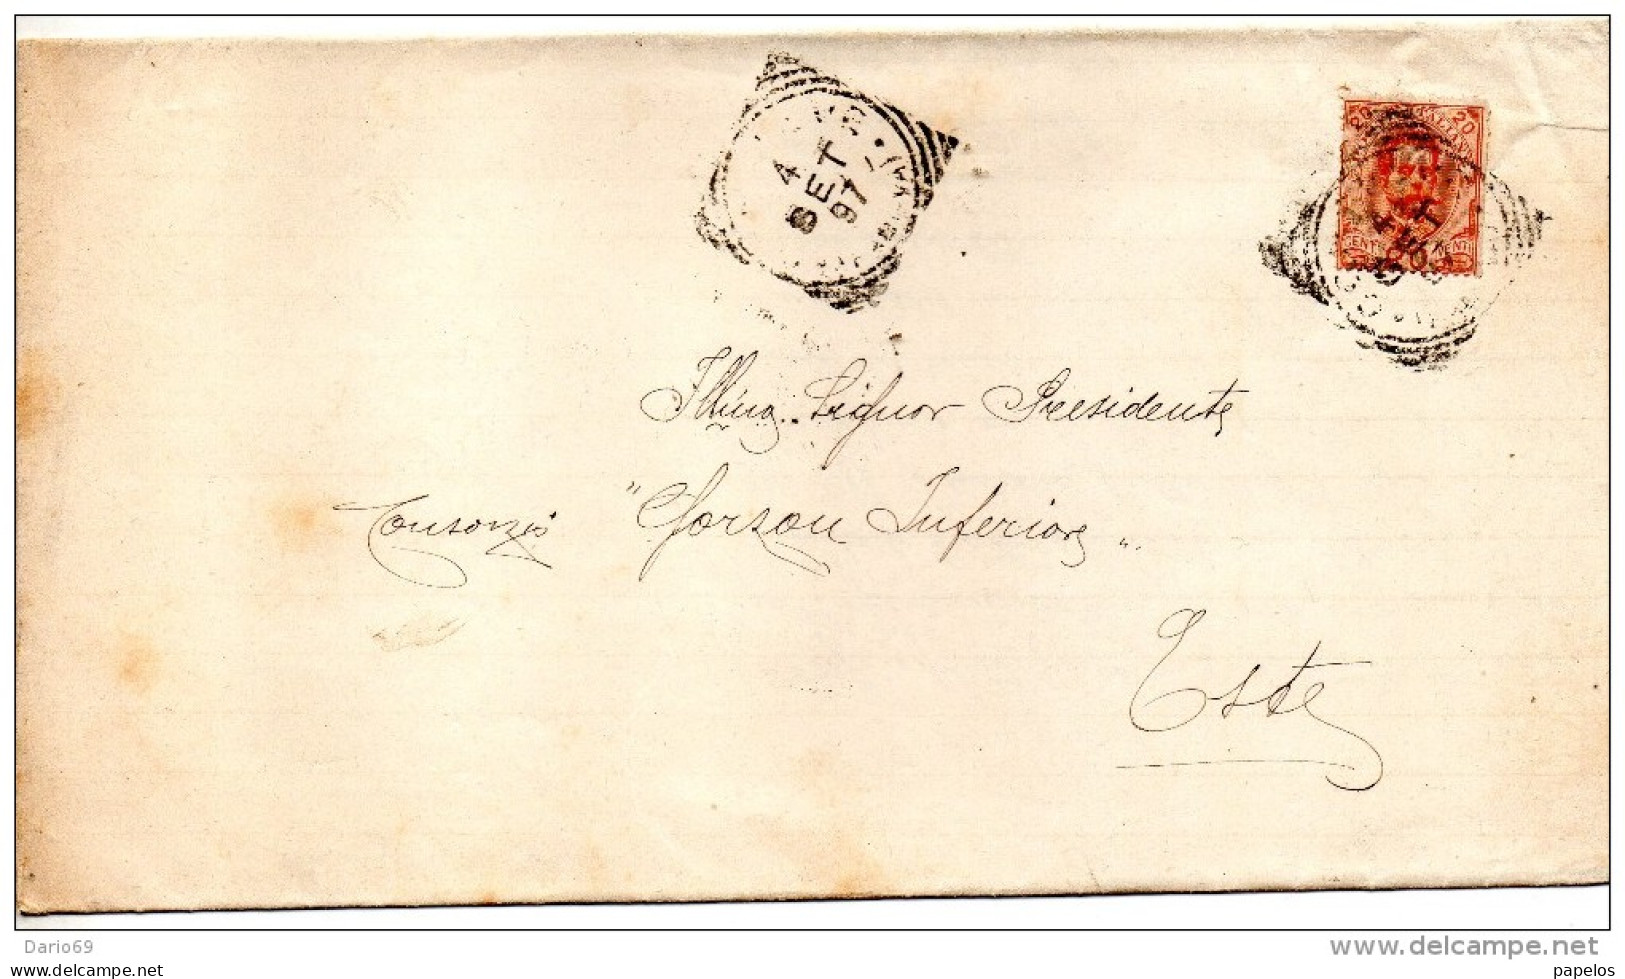 4
SET
97
20 20
4
SET
Illmo. Signor Presidente
Consorzio "Gorzon Inferiore"
Este
Dario69
www.delcampe.net
papelos